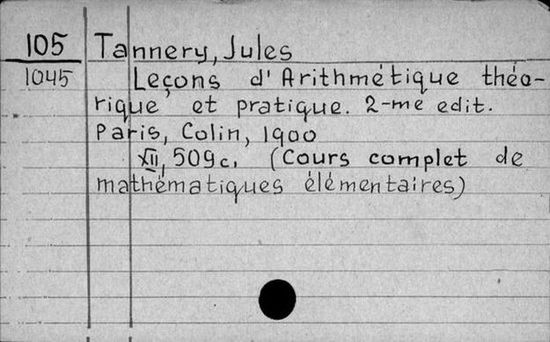 105 Tannery, Jules
1045 Leçons d'Arithmétique théo-
rique et pratique. 2-me edit.
Paris, Colin, 1900
XII, 509c. (Cours complet de
mathématiques élémentaires)